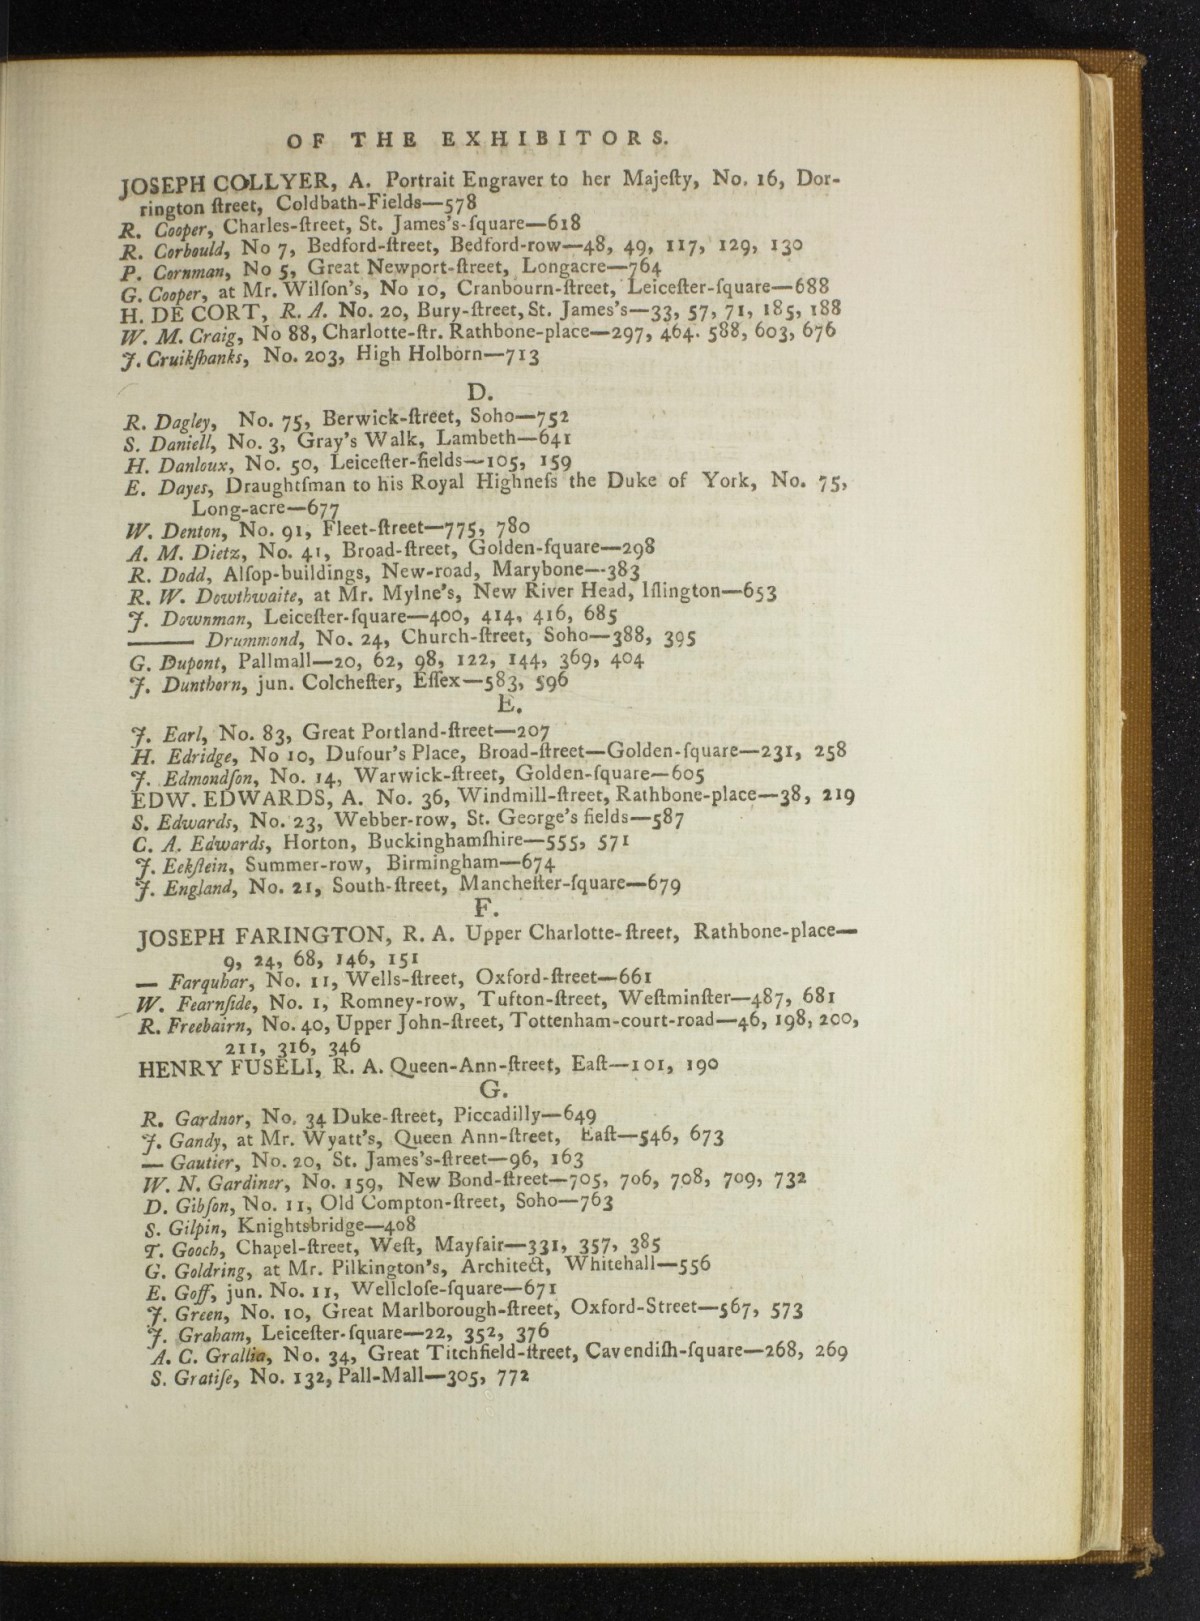 OF THE EXHIBITORS.
JOSEPH COLLYER, A. Portrait Engraver to her Majeſty, No. 16, Dor-
rington ſtreet, Coldbath-Fields—578
R. Cooper, Charles-ſtreet, St. James's-ſquare—618
R. Corbould, No 7, Bedford-ſtreet, Bedford-row—48, 49, 117, 129, 130
P. Cornman, No 5, Great Newport-ſtreet, Longacre—764
G. Cooper, at Mr. Wilſon's, No 10, Cranbourn-ſtreet, Leiceſter-ſquare—688
H. DE CORT, R. A. No. 20, Bury-ſtreet, St. James's—33, 57, 71, 185, 188
W. M. Craig, No 88, Charlotte-ſtr. Rathbone-place—297, 464. 588, 603, 676
J. Cruikſhanks, No. 203, High Holborn—713
D.
R. Dagley, No. 75, Berwick-ſtreet, Soho—752
S. Daniell, No. 3, Gray's Walk, Lambeth—641
H. Danloux, No. 50, Leiceſter-fields—105, 159
E. Dayes, Draughtſman to his Royal Highneſs the Duke of York, No. 75,
Long-acre—677
W. Denton, No. 91, Fleet-ſtreet—775, 780
A. M. Dietz, No. 41, Broad-ſtreet, Golden-ſquare—298
R. Dodd, Alſop-buildings, New-road, Marybone—383
R. W. Dowthwaite, at Mr. Mylne's, New River Head, Iſlington—653
J. Downman, Leiceſter-ſquare—400, 414, 416, 685
——— Drummond, No. 24, Church-ſtreet, Soho—388, 395
G. Dupont, Pallmall—20, 62, 98, 122, 144, 369, 404
J. Dunthorn, jun. Colcheſter, Eſſex—583, 596
E.
J. Earl, No. 83, Great Portland-ſtreet—207
H. Edridge, No 10, Dufour's Place, Broad-ſtreet—Golden-ſquare—231, 258
J. Edmondſon, No. 14, Warwick-ſtreet, Golden-ſquare—605
EDW. EDWARDS, A. No. 36, Windmill-ſtreet, Rathbone-place—38, 219
S. Edwards, No. 23, Webber-row, St. George's fields—587
C. A. Edwards, Horton, Buckinghamſhire—555, 571
J. Eckſtein, Summer-row, Birmingham—674
J. England, No. 21, South-ſtreet, Mancheſter-ſquare—679
F.
JOSEPH FARINGTON, R. A. Upper Charlotte-ſtreet, Rathbone-place—
9, 24, 68, 146, 151
— Farquhar, No. 11, Wells-ſtreet, Oxford-ſtreet—661
W. Fearnſide, No. 1, Romney-row, Tufton-ſtreet, Weſtminſter—487, 681
R. Freebairn, No. 40, Upper John-ſtreet, Tottenham-court-road—46, 198, 200,
211, 316, 346
HENRY FUSELI, R. A. Queen-Ann-ſtreet, Eaſt—101, 190
G.
R. Gardnor, No. 34 Duke-ſtreet, Piccadilly—649
J. Gandy, at Mr. Wyatt's, Queen Ann-ſtreet, Eaſt—546, 673
— Gautier, No. 20, St. James's-ſtreet—96, 163
W. N. Gardiner, No. 159, New Bond-ſtreet—705, 706, 708, 709, 732
D. Gibſon, No. 11, Old Compton-ſtreet, Soho—763
S. Gilpin, Knightsbridge—408
T. Gooch, Chapel-ſtreet, Weſt, Mayfair—331, 357, 385
G. Goldring, at Mr. Pilkington's, Architect, Whitehall—556
E. Goff, jun. No. 11, Wellcloſe-ſquare—671
J. Green, No. 10, Great Marlborough-ſtreet, Oxford-Street—567, 573
J. Graham, Leiceſter-ſquare—22, 352, 376
A. C. Grallia, No. 34, Great Titchfield-ſtreet, Cavendiſh-ſquare—268, 269
S. Gratiſe, No. 132, Pall-Mall—305, 772